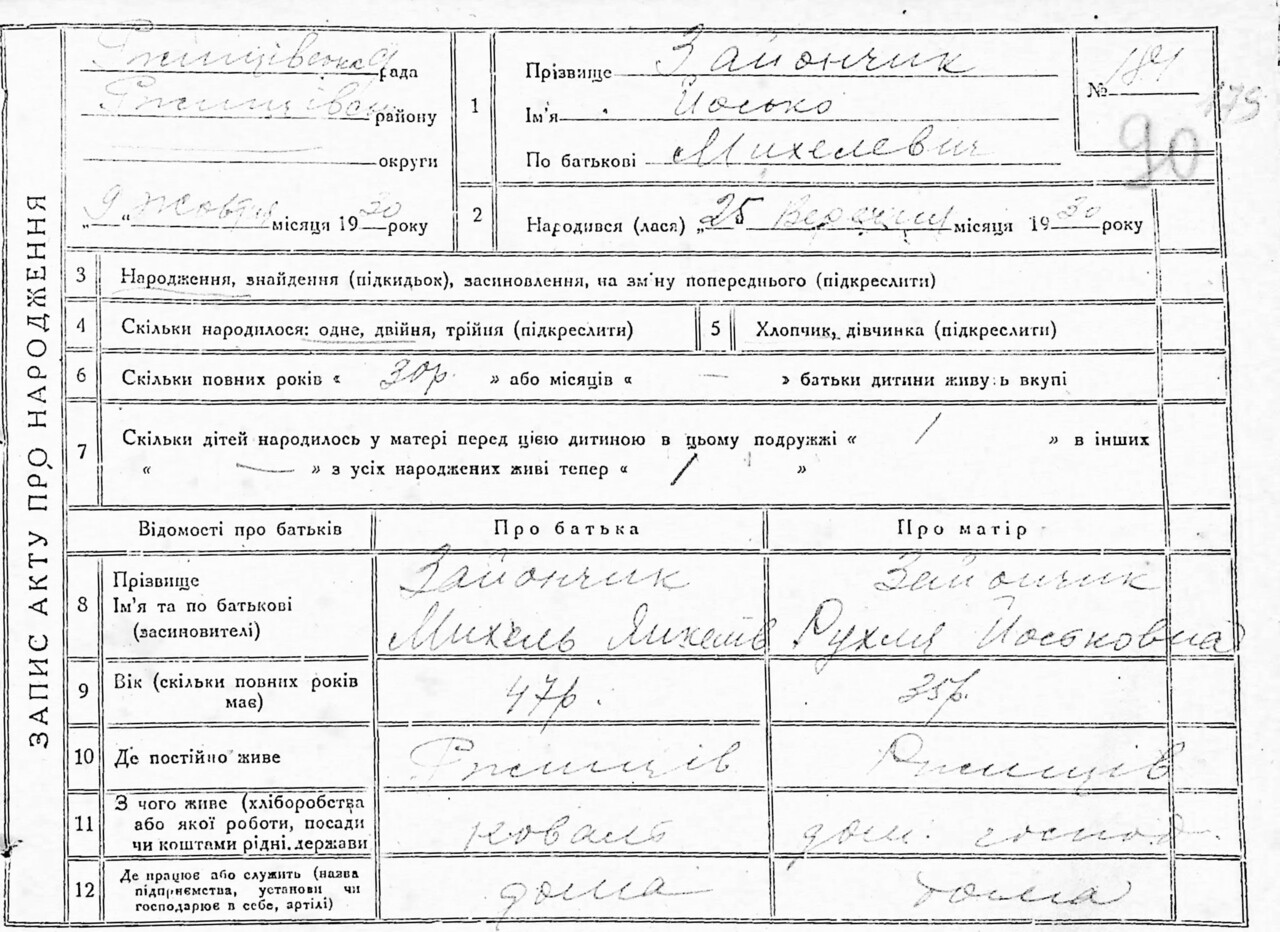 ЗАПИС АКТУ ПРО НАРОДЖЕННЯ
Ржищівська рада
Ржищівськ району
округи
„9“ жовтня місяця 1930 року
1
Прізвище Зайончик
Ім'я Йосько
По батькові Михелевич
№ 184
175
90
2
Народився (лася) „25 Вересня місяця 1930 року
3 Народження, знайдення (підкидьок), засиновлення, на зм'ну попереднього (підкреслити)
4 Скільки народилося: одне, двійня, трійня (підкреслити)
5 Хлопчик, дівчинка (підкреслити)
6 Скільки повних років « 30р. » або місяців « — » батьки дитини живу:ь вкупі
7 Скільки дітей народилось у матері перед цією дитиною в цьому подружжі « 1 » в інших
« — » з усіх народжених живі тепер « 1 »
Відомості про батьків Про батька Про матір
8 Прізвище
Ім'я та по батькові
(засиновителі)
Зайончик
Михель
Зайончик
Рухля Йоськовна
9 Вік (скільки повних років
має)
47р.
35р.
10 Де постійно живе Ржищів Ржищів
11 З чого живе (хліборобства
або якої роботи, посади
чи коштами рідні, держави
коваль
дом. господ.
12 Де працює або служить (назва
підприємства, установи чи
господарює в себе, артілі)
дома
дома